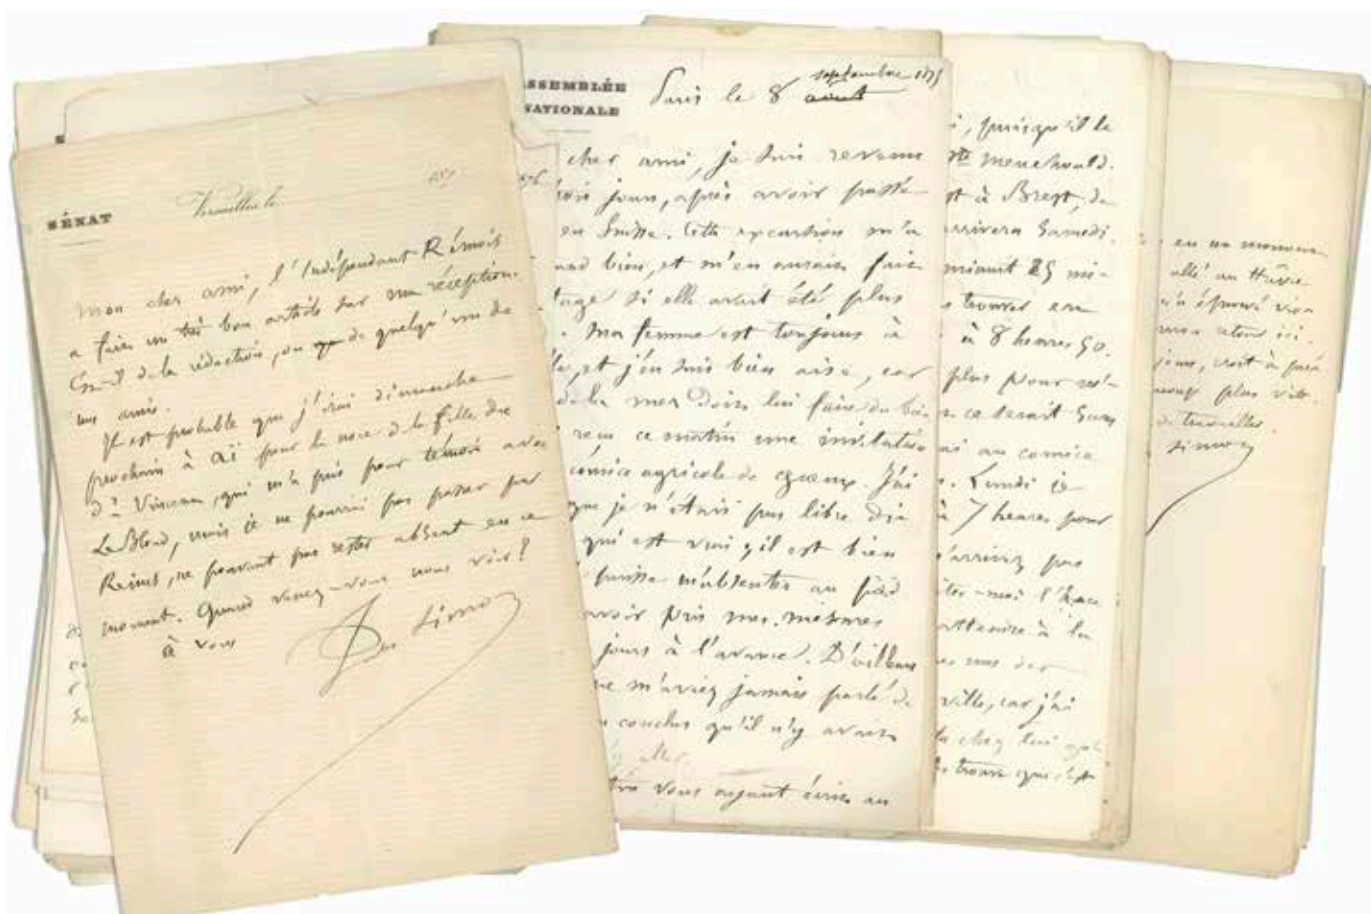 SÉNAT
Versailles le 187
mon cher ami, l'Indépendant Rémois
a fait un bon article sur ma réception.
Est-il de la rédaction, ou de quelqu'un de
mes amis.
Il est probable que j'irai dimanche
prochain à aï pour la noce de la fille du
Dr Vincent, qui m'a pris pour témoin avec
Le Blond, mais je ne pourrai pas passer par
Reims, ne pouvant pas rester absent en ce
moment. Quand venez-vous nous voir?
à vous
Jules Simon
SSEMBLÉE
NATIONALE
Paris le 8 août septembre 1875
cher ami, je suis revenu
trois jours, après avoir passé
en Suisse. Cette excursion m'a
and bien, et m'en aurait fait
tage si elle avait été plus
. Ma femme est toujours à
, et j'en suis bien aise, car
de la mer doit lui faire du bien
reçu ce matin une invitation
comice agricole de . J'ai
que je n'étais pas libre
qui est vrai; il est bien
puisse m'absenter au pied
avoir pris mes mesures
jours à l'avance. D'ailleurs
ne m'aviez jamais parlé de
conclus qu'il n'y avait
y aller.
vous ayant écrit au
i, puisqu'il la
Ste menehould.
st à Brest, de
arrivera Samedi.
minuit 25 mi-
s trouver en
à 8 heures 50.
plus pour
ce serait sans
ai au comice
. Lundi je
à 7 heures pour
n'arriviez pas
ites-moi l'heure
attendre à la
es rues de
ville, car j'ai
chez lui
trouve que c'est
eu un moment
allé au Hâvre
n'a éprouvé
mon retour ici.
croit à
coup plus vite.
de travailler.
Simon